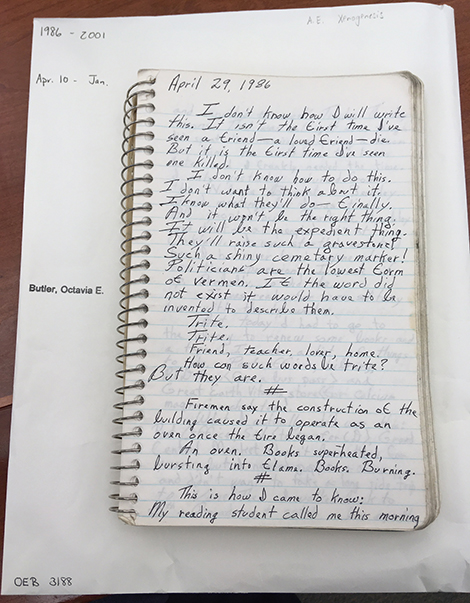 1986 - 2001
A.E. Xenogenesis
Apr. 10 - Jan.
Butler, Octavia E.
April 29, 1986
I don't know how I will write
this. It isn't the first time I've
seen a friend — a loved friend — die.
But it is the first time I've seen
one killed.
I don't know how to do this.
I don't want to think about it.
I know what they'll do — finally.
And it won't be the right thing.
It will be the expedient thing.
They'll raise such a gravestone!
Such a shiny cemetary marker!
Politicians are the lowest form
of vermen. If the word did
not exist it would have to be
invented to describe them.
Trite.
Trite.
Friend, teacher, lover, home.
How can such words be trite?
But they are.
#
Firemen say the construction of the
building caused it to operate as an
oven once the fire began.
An oven. Books superheated,
bursting into flame. Books. Burning.
#
This is how I came to know:
My reading student called me this morning
OEB 3188